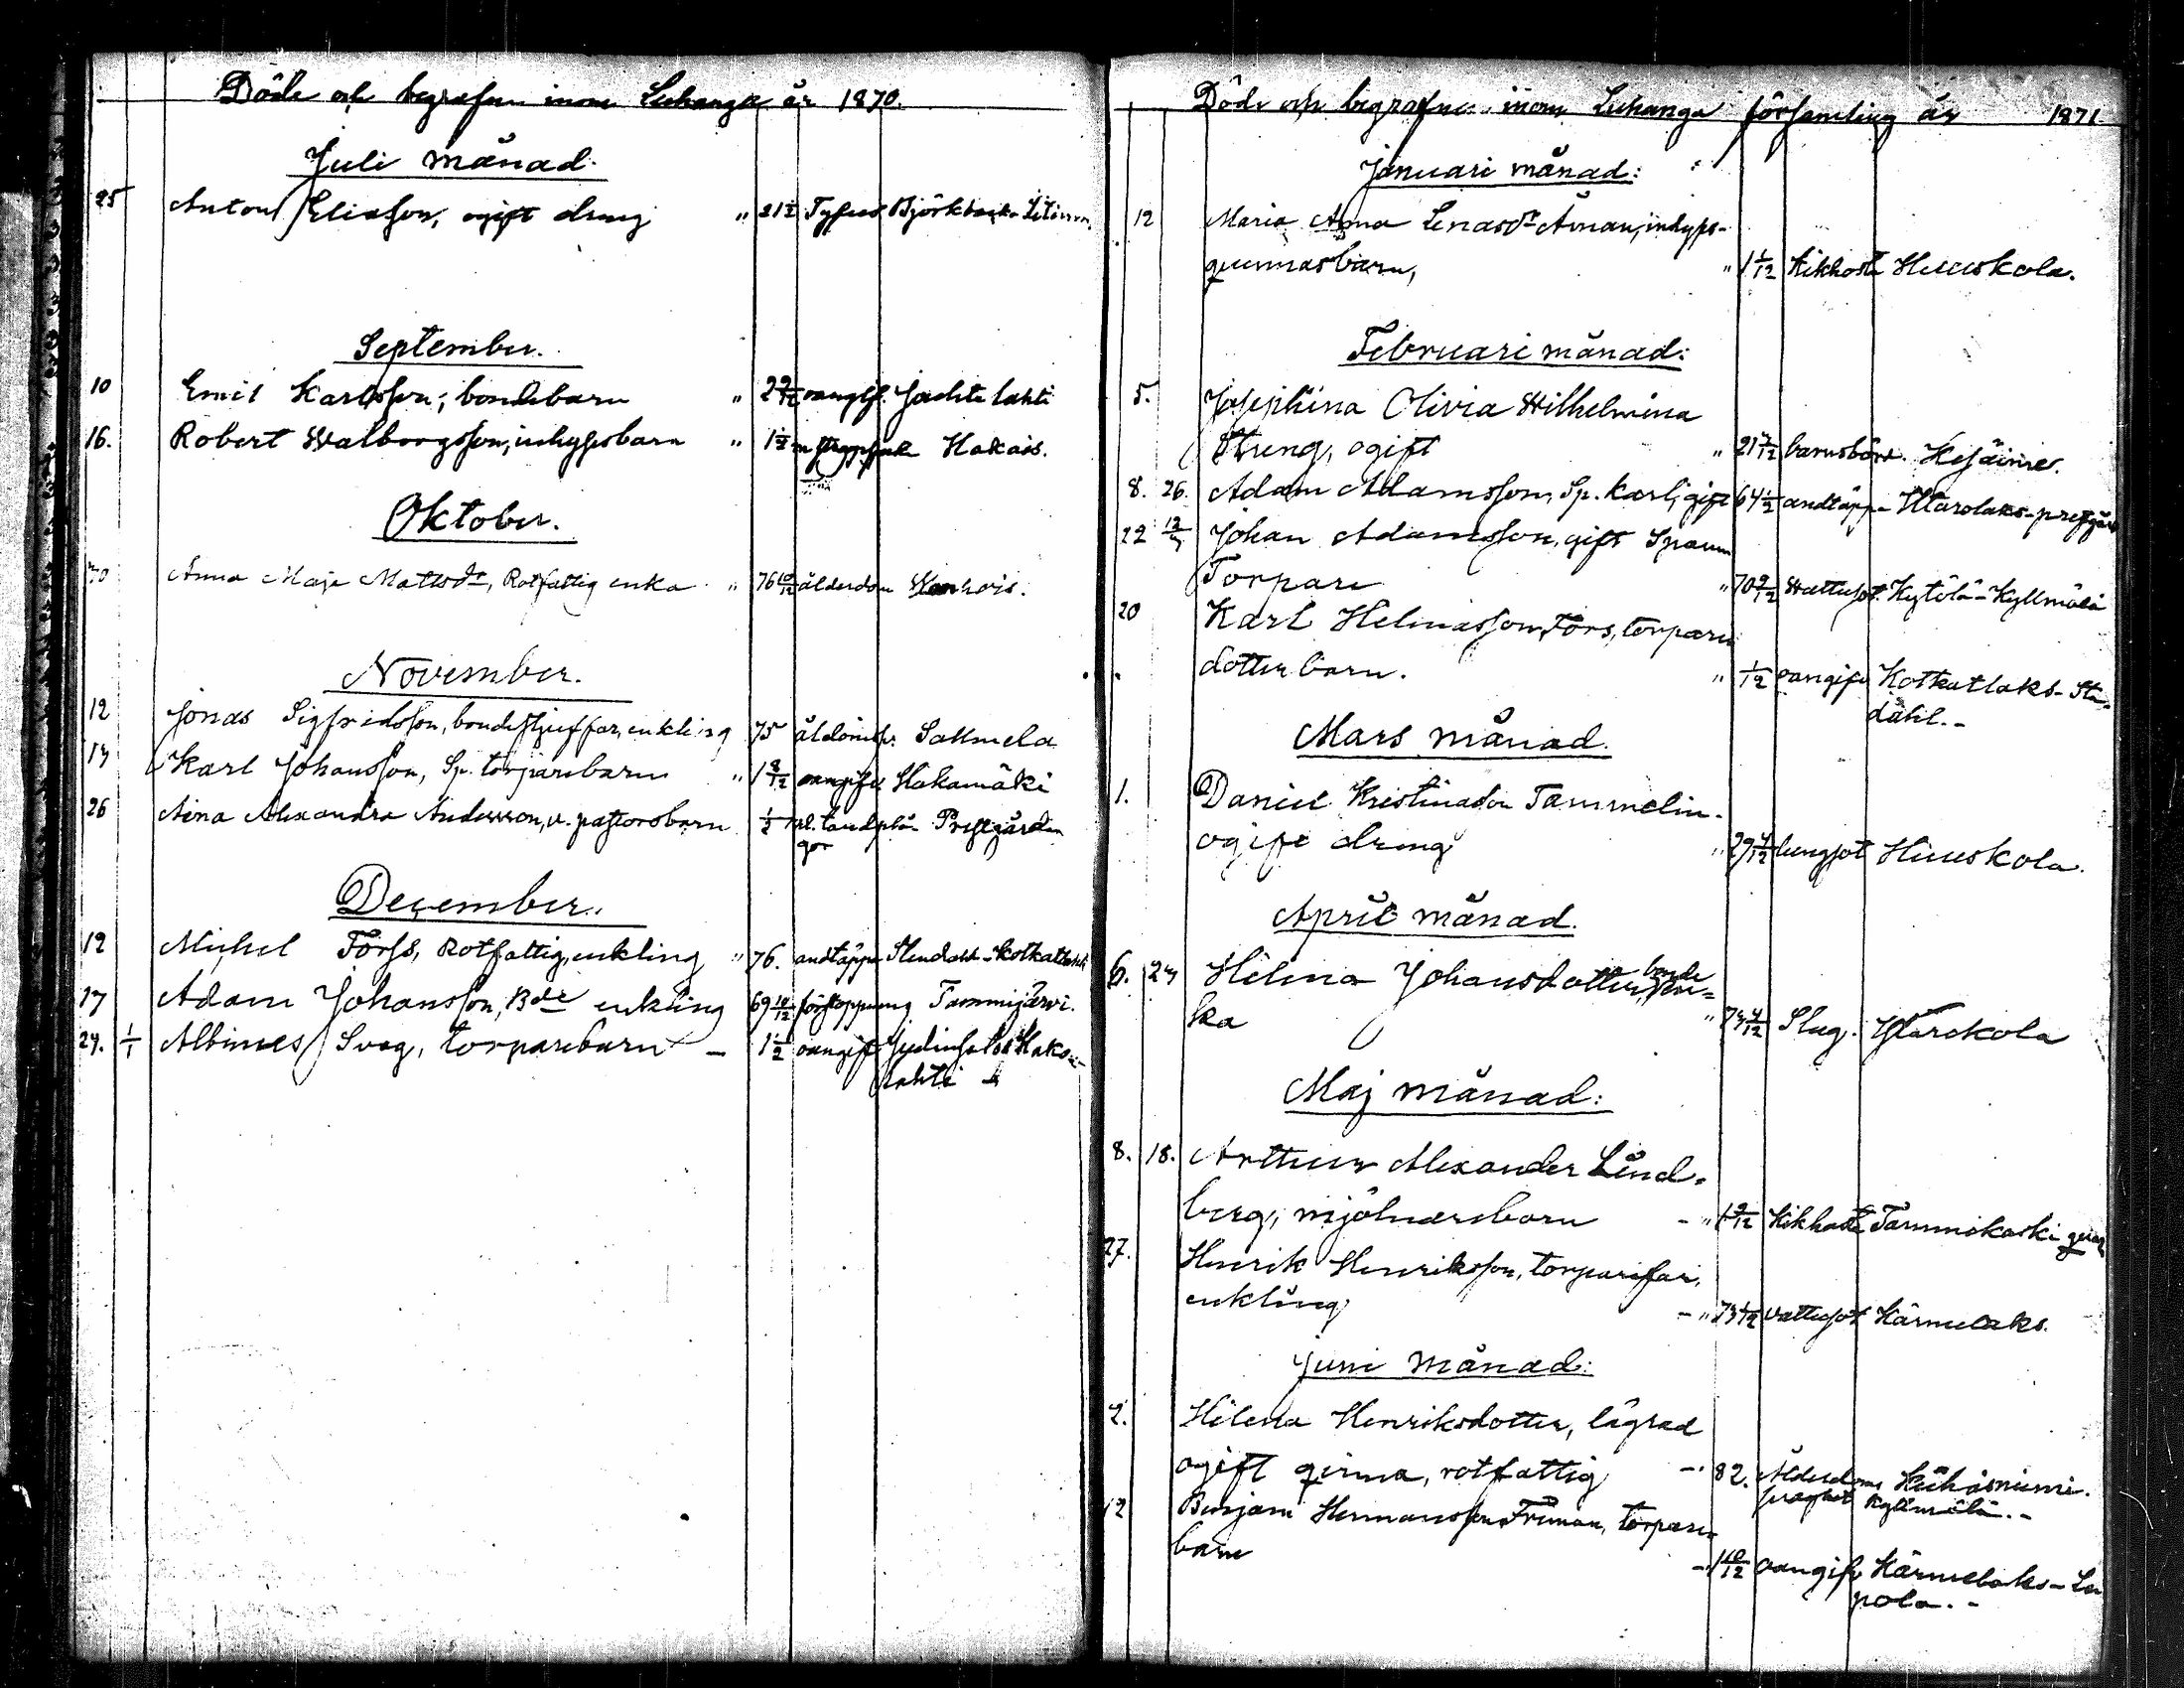 Döde och begrafne inom Luhanga år 1870.
Juli månad.
25 Anton Eliasson, ogift dreng " 21 1/2 Tyfus Björkbacka
September.
10 Emil Karlsson, bondebarn " 2 9/12 oangif. Jachtelahti
16. Robert Walborgsson, inhysesbarn " 1 1/2 Hakais.
Oktober.
30 Anna Maja Mattsdr, Rotfattig enka " 76 10/12 ålderdom Wanhais.
November.
12 Jonas Sigfridsson, bondestjuffar, enkling 75 Salmela
14 Karl Johansson, Sp. torparebarn " 1 8/12 oangifv. Hakamäki
26 Aina Alexandra Andersson, v. pastorsbarn 1/2 sl. tandplå- Prestgården
gor
December.
12 Michel Förss, Rotfattig, enkling " 76. andtäppa Stendahl-Kotkatlaks
17 Adam Johansson, Bde enkling 69 10/12 förstoppning Tammijärvi.
24. 1/1 Albinus Svag, torparebarn - 1 1/2 oangift
lahti
Döde och begrafne inom Luhanga församling år 1871.
Januari månad:
12 Maria Anna Lenasdr Åman, inhyses-
qvinnasbarn, " 1 1/12 Kikhosta Huuskola.
Februari månad:
5. Josephina Olivia Wilhelmina
Streng, ogift " 21 7/12 barnsbörd. Kesäinie.
8. 26. Adam Adamsson, Sp. karl, gift 64 1/2 andtäpp- Utarolaks-prestgård
22 12/3 Johan Adamsson, gift Spanm
Torpare " 70 9/12 Wattusot. Kytölä-Kyllmälä
20 Karl Helenasson Förs, torpare
dotterbarn. " 1/12 oangifv. Kotkatlaks-Sten-
dahl.-
Mars månad.
1. Daniel Kristinason Tammelin-
ogift dreng " 29 4/12 lungsot Huuskola.
April månad.
6. 24 Helena Johansdotter, bonde en-
ka " 74 4/12 Slag.
Maj månad:
8. 18. Arthur Alexander Lind-
berg, mjölnarebarn - " 1 9/12 Kikhosta Tammikoski qvarn
27. Henrik Henriksson, torparefar,
enkling - " 74 1/12 Vattusot Kärmelaks.
Juni månad:
2. Helena Henriksdotter, lägrad
ogift qvinna, rotfattig - 82. Ålderdoms Keihäsniemi.
svaghet Kyllmälä.-
12 Benjam Hermansson Friman, torpare
barn - 1 10/12 oangifv. Kärmelaks-Le
pola.-